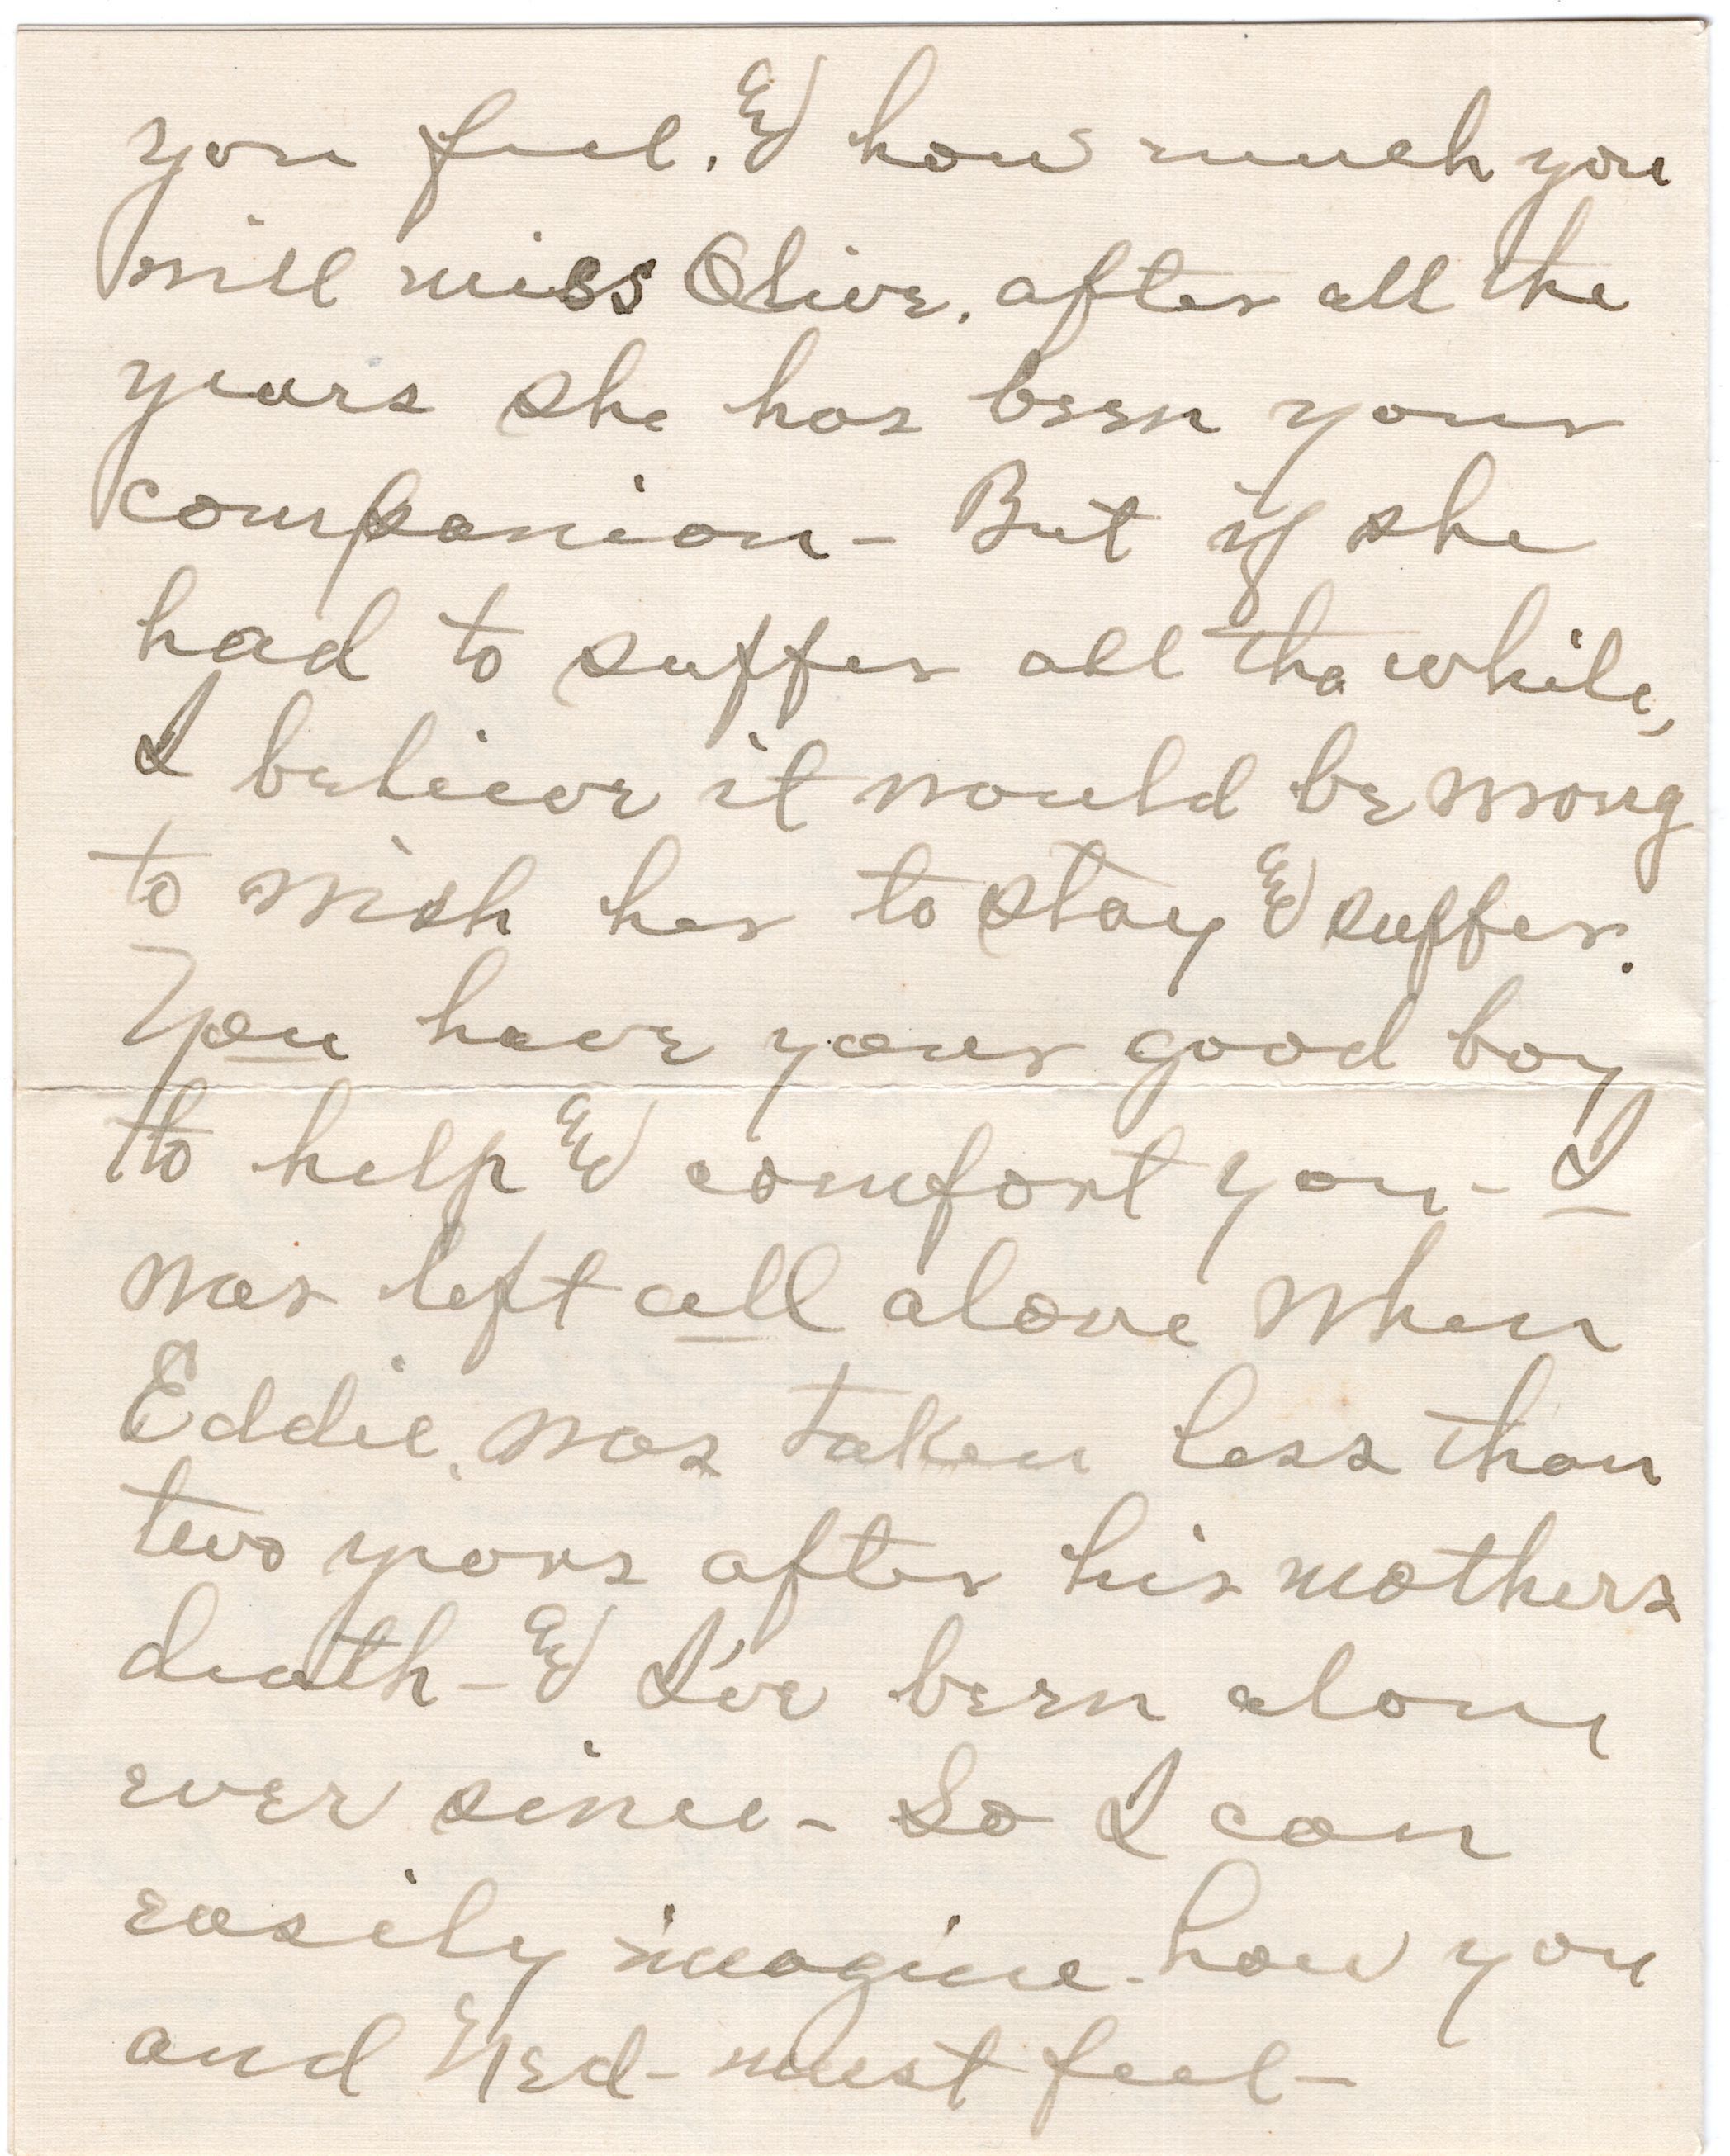 you feel. & how much you
will miss Olive. after all the
years she has been your
companion - But if she
had to suffer all the while,
I believe it would be wrong
to wish her to stay & suffer.
You have your good boy
to help & comfort you - I
was left all alone when
Eddie, was taken less than
two years after his mothers
death - & I've been alone
ever since - So I can
easily imagine - how you
and Ned - must feel -